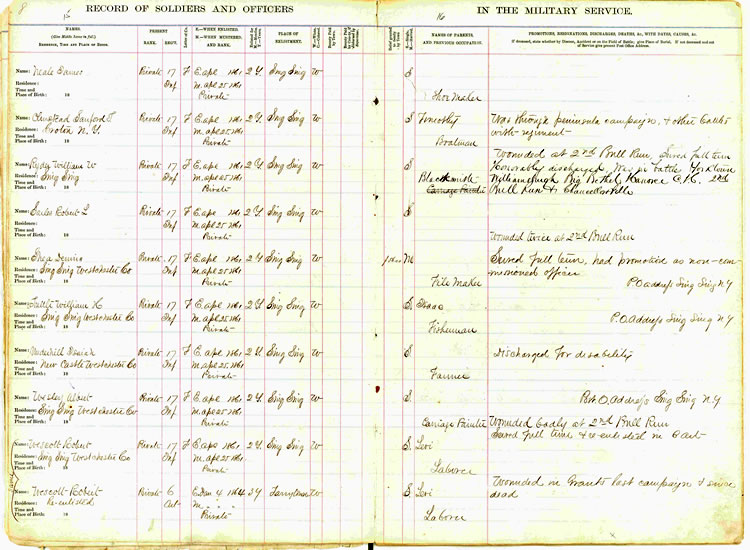 8
15
RECORD OF SOLDIERS AND OFFICERS
NAMES.
(Give Middle Name in full.)
RESIDENCE, TIME AND PLACE OF BIRTH.
PRESENT
RANK. REG'T.
PLACE OF
ENLISTMENT.
Name: Neale James Private 17 F E apl 1861 2 Y. Sing Sing W
Residence: Inf M. apl 25 1861
Time and
Place of Birth: 18 Private
Name: Sanford T Private 17 F E apl 1861 2 Y. Sing Sing W
Residence: Croton N.Y. Inf M. apl 25 1861
Time and
Place of Birth: 18 Private
Name: William W Private 17 F E apl 1861 2 Y. Sing Sing W
Residence: Sing Sing Inf M. apl 25 1861
Time and
Place of Birth: 18 Private
Name: Robert L Private 17 F E apl 1861 2 Y. Sing Sing W
Residence: Inf M. apl 25 1861
Time and
Place of Birth: 18 Private
Name: Shea Dennis Private 17 F E apl 1861 2 Y. Sing Sing W
Residence: Sing Sing Westchester Co Inf M. apl 25 1861
Time and
Place of Birth: 18 Private
Name: Tuttle William H Private 17 F E apl 1861 2 Y. Sing Sing W
Residence: Sing Sing Westchester Co Inf M. apl 25 1861
Time and
Place of Birth: 18 Private
Name: Underhill Private 17 F E apl 1861 2 Y. Sing Sing W
Residence: New Castle Westchester Co Inf M. apl 25 1861
Time and
Place of Birth: 18 Private
Name: Wesley Albert Private 17 F E apl 1861 2 Y. Sing Sing W
Residence: Sing Sing Westchester Co Inf M. apl 25 1861
Time and
Place of Birth: 18 Private
Name: Wescott Robert Private 17 F E apl 1861 2 Y. Sing Sing W
Residence: Sing Sing Westchester Co Inf M. apl 25 1861
Time and
Place of Birth: 18 Private
Name: Wescott Robert Private 6 E Jan 4 1864 3 Y Tarrytown W
Residence: Re-enlisted Art M.
Time and
Place of Birth: 18 Private
16
IN THE MILITARY SERVICE.
NAMES OF PARENTS,
AND PREVIOUS OCCUPATION.
PROMOTIONS, RESIGNATIONS, DISCHARGES, DEATHS, &c., WITH DATES, CAUSES, &c.
S
Shoe Maker
S Was through peninsula campaign, & other battles
Boatman with regiment
S Wounded at 2nd Bull Run, Served full term
Honorably discharged, Was in battle Yorktown
Blacksmith Williamsburgh Big Bethel Hanover C.H. 2nd
Carriage Painter Bull Run & Chancellorsville
S
Wounded twice at 2nd Bull Run
M Served full term, had promotion as non-com
missioned officer
File Maker P.O address Sing Sing N.Y
S Isaac
P.O. Address Sing Sing N.Y
Fisherman
S Discharged for disability
Farmer
S Post O. Address Sing Sing N.Y
Carriage Painter Wounded badly at 2nd Bull Run
S Levi Served full time & re-enlisted in 6 art
Laborer
S Levi Wounded in Grants last campaign & since
dead
Laborer